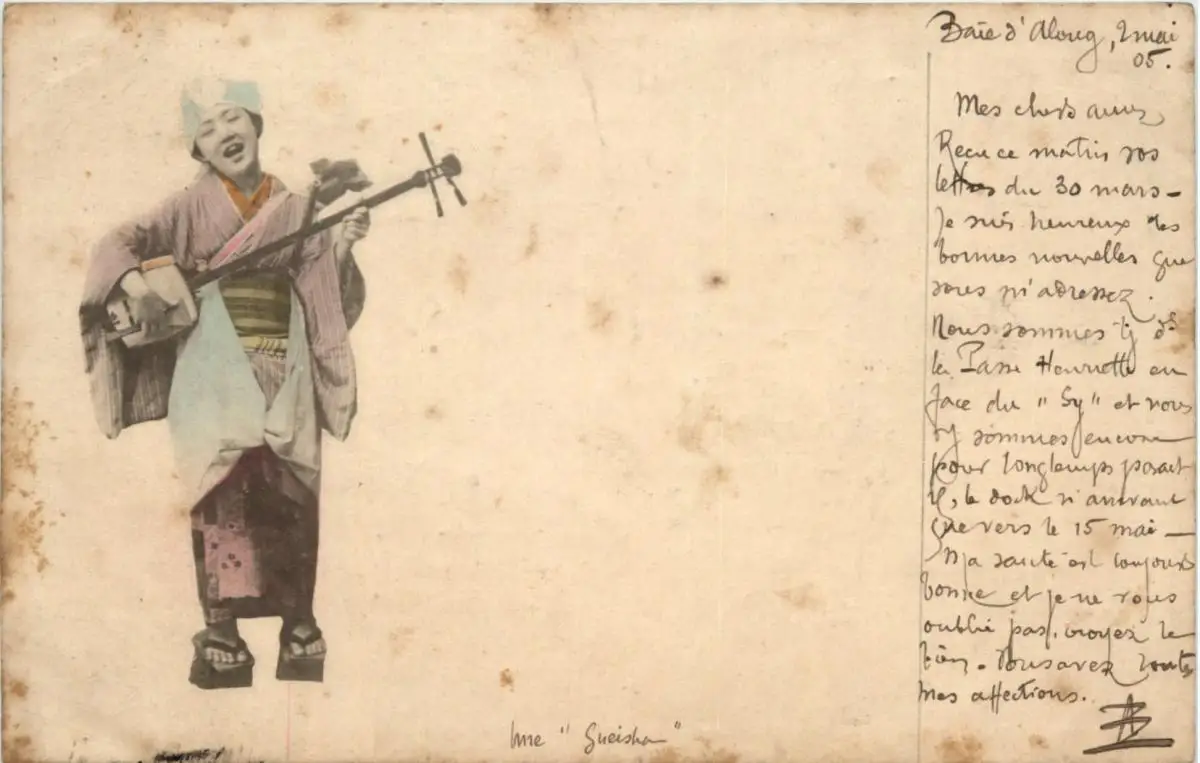 Baie d'Along, 2 mai
05.
Mes chers amis
Reçu ce matin vos
lettres du 30 mars -
Je suis heureux des
bonnes nouvelles que
vous m'adressez.
Nous sommes ds
la Passe Henriette en
face du "Sy" et nous
y sommes encore
pour longtemps paraît
il, le dock n'arrivant
que vers le 15 mai -
Ma santé est toujours
bonne et je ne vous
oublie pas, croyez le
bien. Vous avez toutes
mes affections.
Une "Gueisha"